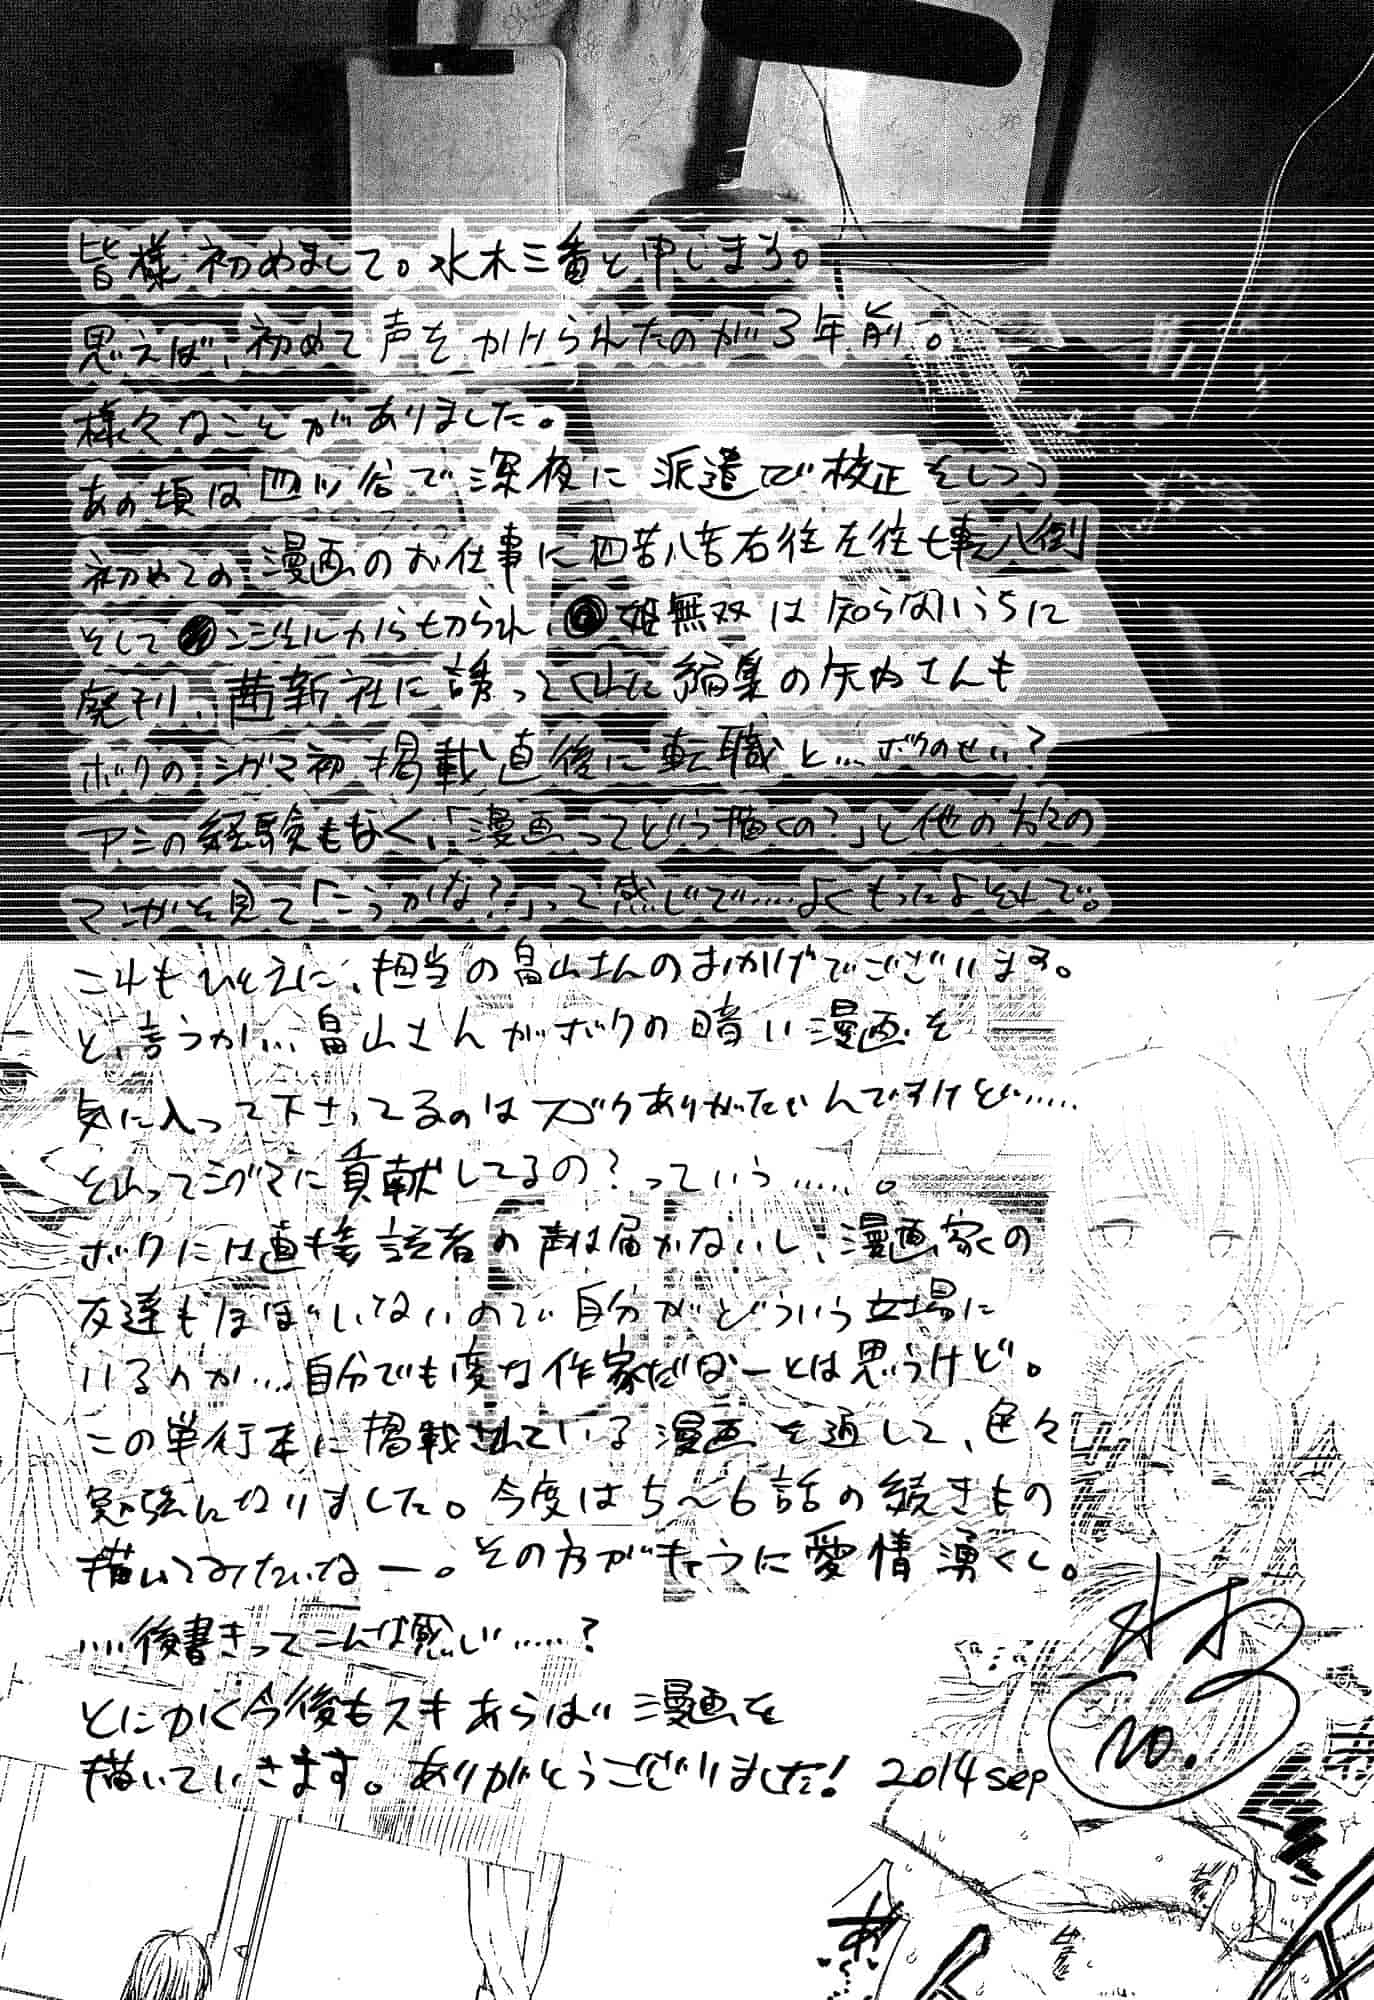 皆様初めまして。水木三番と申します。
思えば、初めて声をかけられたのが3年前。
様々なことがありました。
あの頃は四ツ谷で深夜に派遣で校正をしつつ
初めての漫画のお仕事に四苦八苦右往左往七転八倒
そして●ンジェルから切られ、●姫無双は知らないうちに
廃刊、茜新社に誘ってくれた編集の矢内さんも
ボクのシグマ初掲載直後に転職と…ボクのせい?
アシの経験もなく、「漫画ってどう描くの?」と他の方々の
マンガを見て「こうかな?」って感じで……よくもったよそれで。
これもひとえに、担当の畠山さんのおかげでございます。
と、言うか…畠山さんがボクの暗い漫画を
気に入って下さってるのはスゴクありがたいんですけど……
それってシグマに貢献してるの?っていう……。
ボクには直接読者の声は届かないし、漫画家の
友達もほぼいないので自分がどういう立場に
いるのか…自分でも変な作家だなーとは思うけど。
この単行本に掲載されている漫画を通して、色々
勉強になりました。今度は5〜6話の続きもの
描いてみたいなー。その方がキャラに愛情湧くし。
…後書きってこんな感じ……?
とにかく今後もスキあらば漫画を
描いていきます。ありがとうございました! 2014 sep
No.
あ!